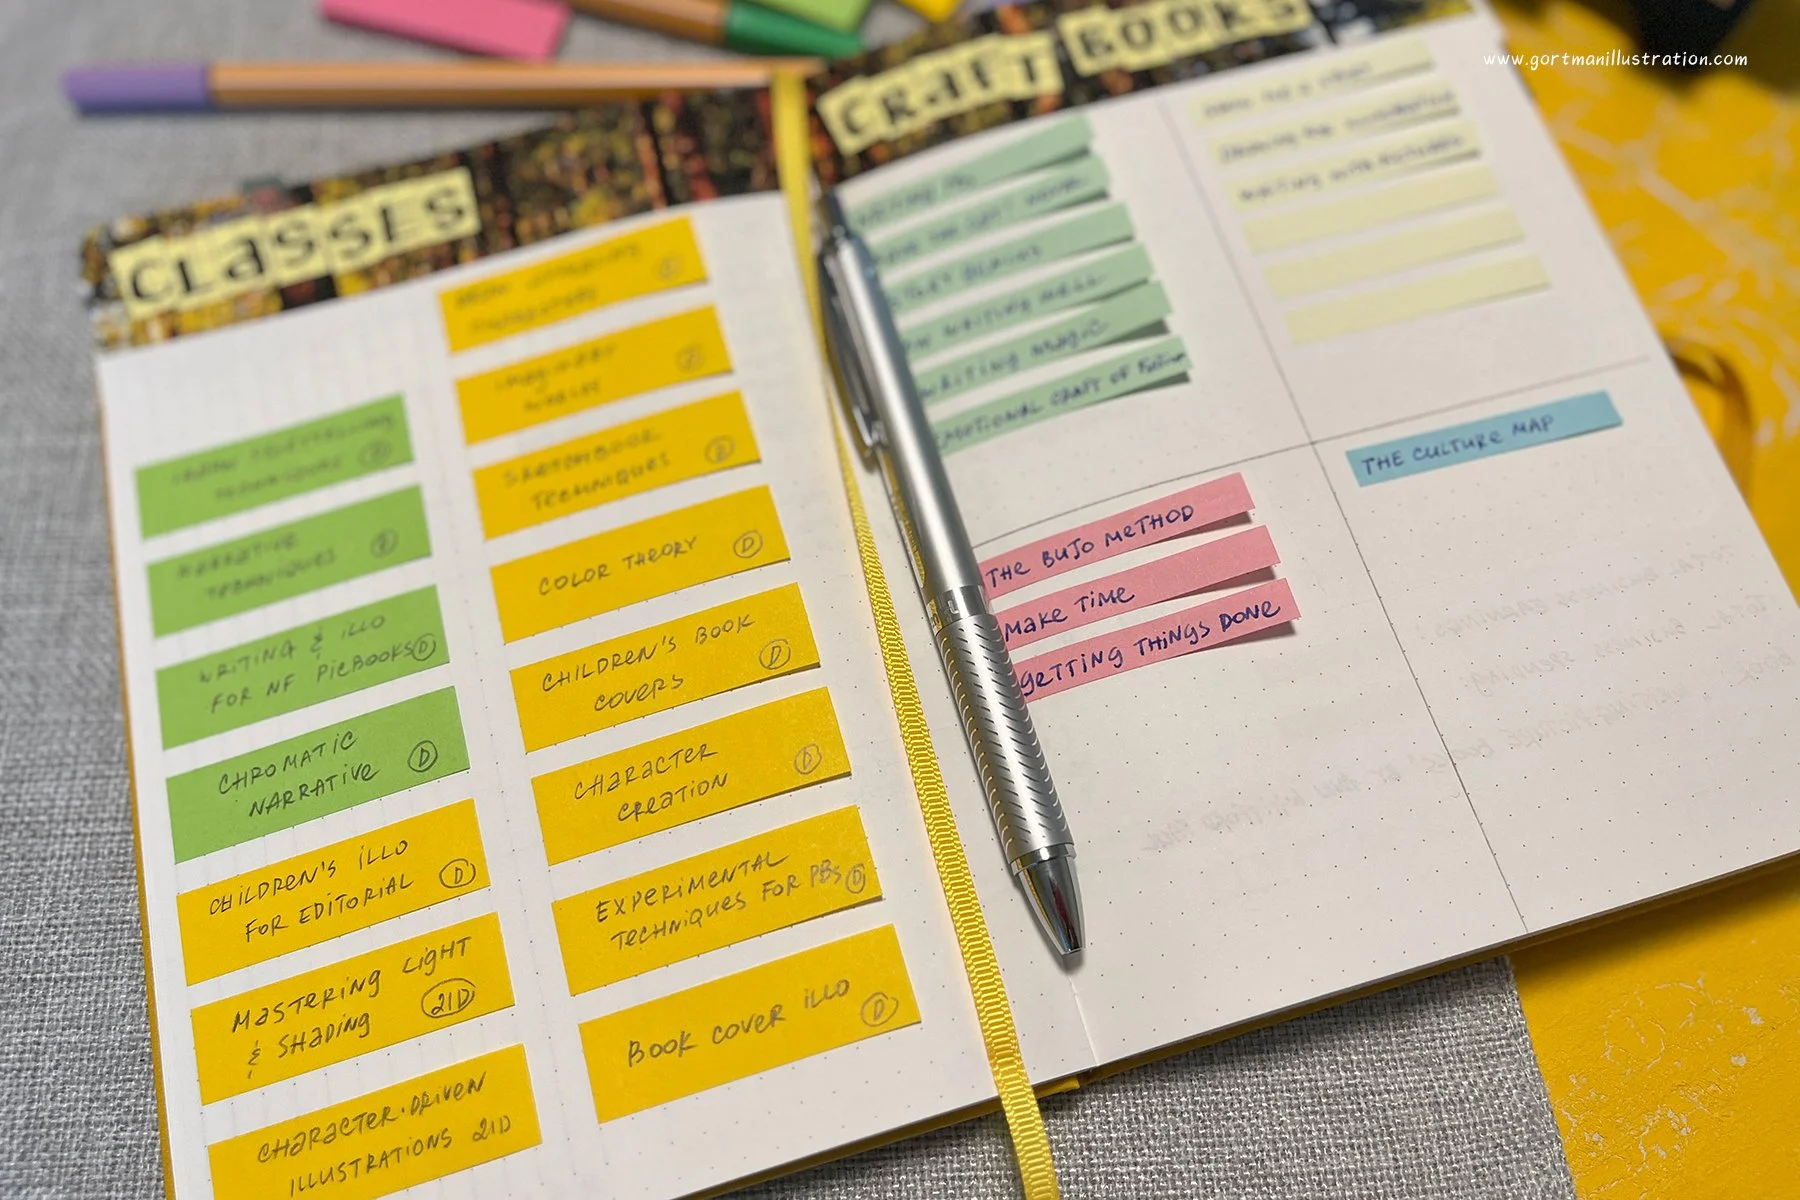 www.gortmanillustration.com
CLASSES
NARRATIVE
TECHNIQUES D
WRITING & ILLO
FOR NF PICBOOKS D
CHROMATIC
NARRATIVE D
CHILDREN'S ILLO
FOR EDITORIAL D
MASTERING LIGHT
& SHADING 21D
CHARACTER-DRIVEN
ILLUSTRATIONS 21D
IMAGINARY
WORLDS
SKETCHBOOK
TECHNIQUES D
COLOR THEORY D
CHILDREN'S BOOK
COVERS D
CHARACTER
CREATION D
EXPERIMENTAL
TECHNIQUES FOR PBs D
BOOK COVER ILLO D
CRAFT BOOKS
WRITING WELL
WRITING MAGIC
EMOTIONAL CRAFT OF
THE BUJO METHOD
MAKE TIME
GETTING THINGS DONE
WRITING WITH PICTURES
THE CULTURE MAP